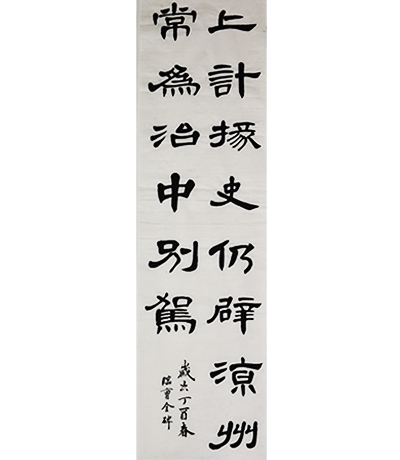 上計掾史仍辟涼州
常為治中別駕
歲次丁酉春
臨曹全碑